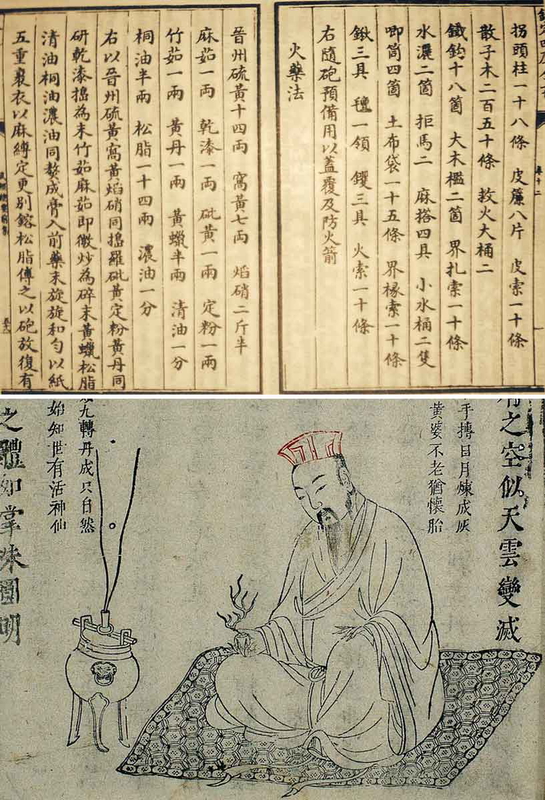 拐頭柱一十八條 皮簾八片 皮索一十條
散子木二百五十條 救火大桶二
鐵鈎十八箇 大木檻二箇 界扎索一十條
水濃二箇 拒馬二 麻搭四具 小水桶二隻
唧筒四箇 土布袋一十五條 界椽索一十條
鍬三具 氊一領 钁三具 火索一十條
右隨砲預備用以蓋覆及防火箭
火藥法
晉州硫黃十四兩 窩黃七兩 焰硝二斤半
麻茹一兩 乾漆一兩 砒黃一兩 定粉一兩
竹茹一兩 黃丹一兩 黃蠟半兩 清油一分
桐油半兩 松脂一十四兩 濃油一分
右以晉州硫黃窩黃焰硝同搗羅砒黃定粉黃丹同
研乾漆搗為末竹茹麻茹即微炒為碎末黃蠟松脂
清油桐油濃油同熬成膏入前藥末旋旋和勻以紙
五重裹衣以麻縛定更別鎔松脂傅之以砲放復有
之空似天雲變滅
手摶日月煉成灰
黃婆不老猶懷胎
九轉丹成只自然
始知世有活神仙
之體如掌珠圓明